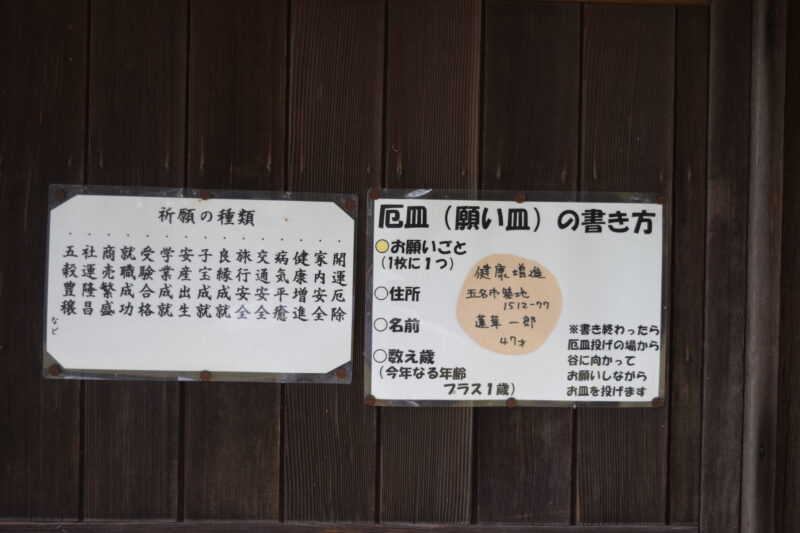 祈願の種類
・開運厄除
・家内安全
・健康増進
・病気平癒
・交通安全
・旅行安全
・良縁成就
・子宝成就
・安産出生
・学業成就
・受験合格
・就職成功
・商売繁盛
・社運隆昌
・五穀豊穣
など
厄皿（願い皿）の書き方
○お願いごと
（1枚に１つ）
○住所
○名前
○数え歳
（今年なる年齢
プラス１歳）
健康増進
玉名市築地
1512-77
蓮華 一郎
47才
※書き終わったら
厄皿投げの場から
谷に向かって
お願いしながら
お皿を投げます